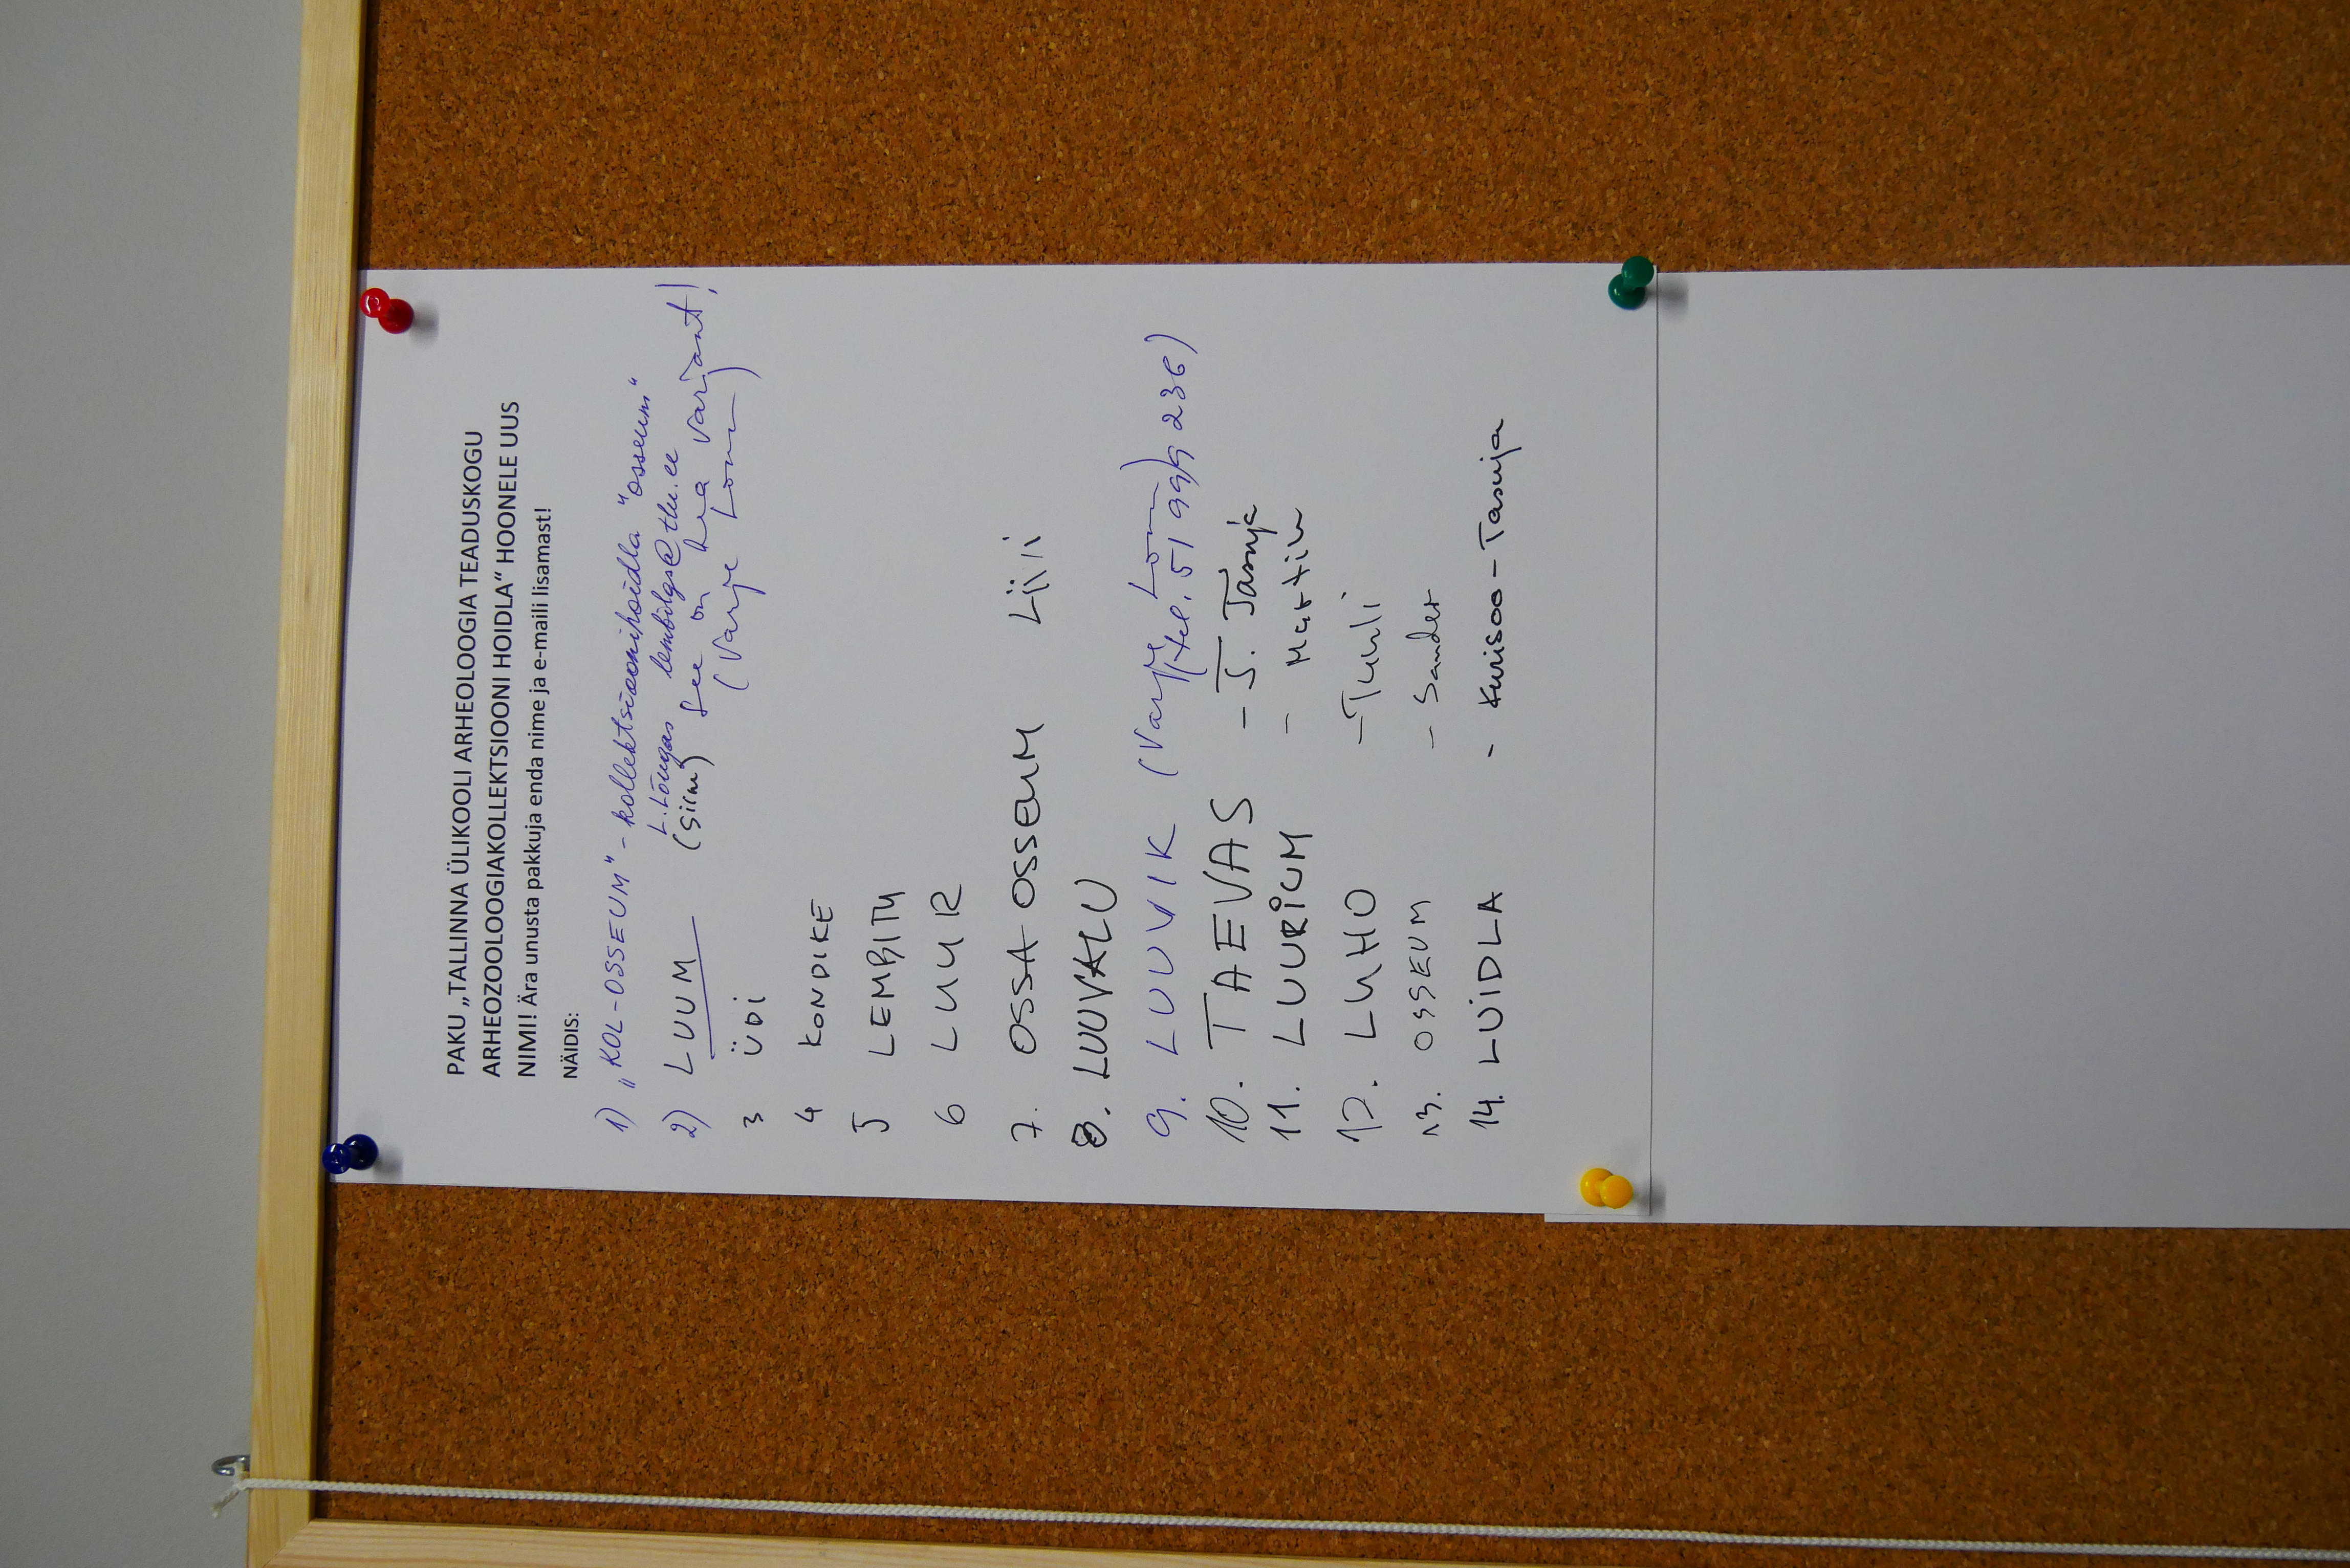 PAKU „TALLINNA ÜLIKOOLI ARHEOLOOGIA TEADUSKOGU
ARHEOZOOLOOGIAKOLLEKTSIOONI HOIDLA“ HOONELE UUS
NIMI! Ära unusta pakkuja enda nime ja e-maili lisamast!
NÄIDIS:
1) „KOL-OSSEUM" - kollektsioonihoidla "osseum"
L. Lõugas lembilgs@tlu.ee
2) LUUM (Siim) See on hea varijant!
(Varje Lõm)
3 ÜDI
4 KONDIKE
5 LEMBITU
6 LUUR
7. OSSA OSSEUM Liili
8. LUUVALU
9. LUUVIK (Varje Lõm)
(tel. 51 999 236)
10. TAEVAS - J. Tasuja
11. LUURIUM - Martin
12. LUHO - Tuuli
13. OSSEUM - Sander
14. LUIDLA - Kurisoo-Tasuja